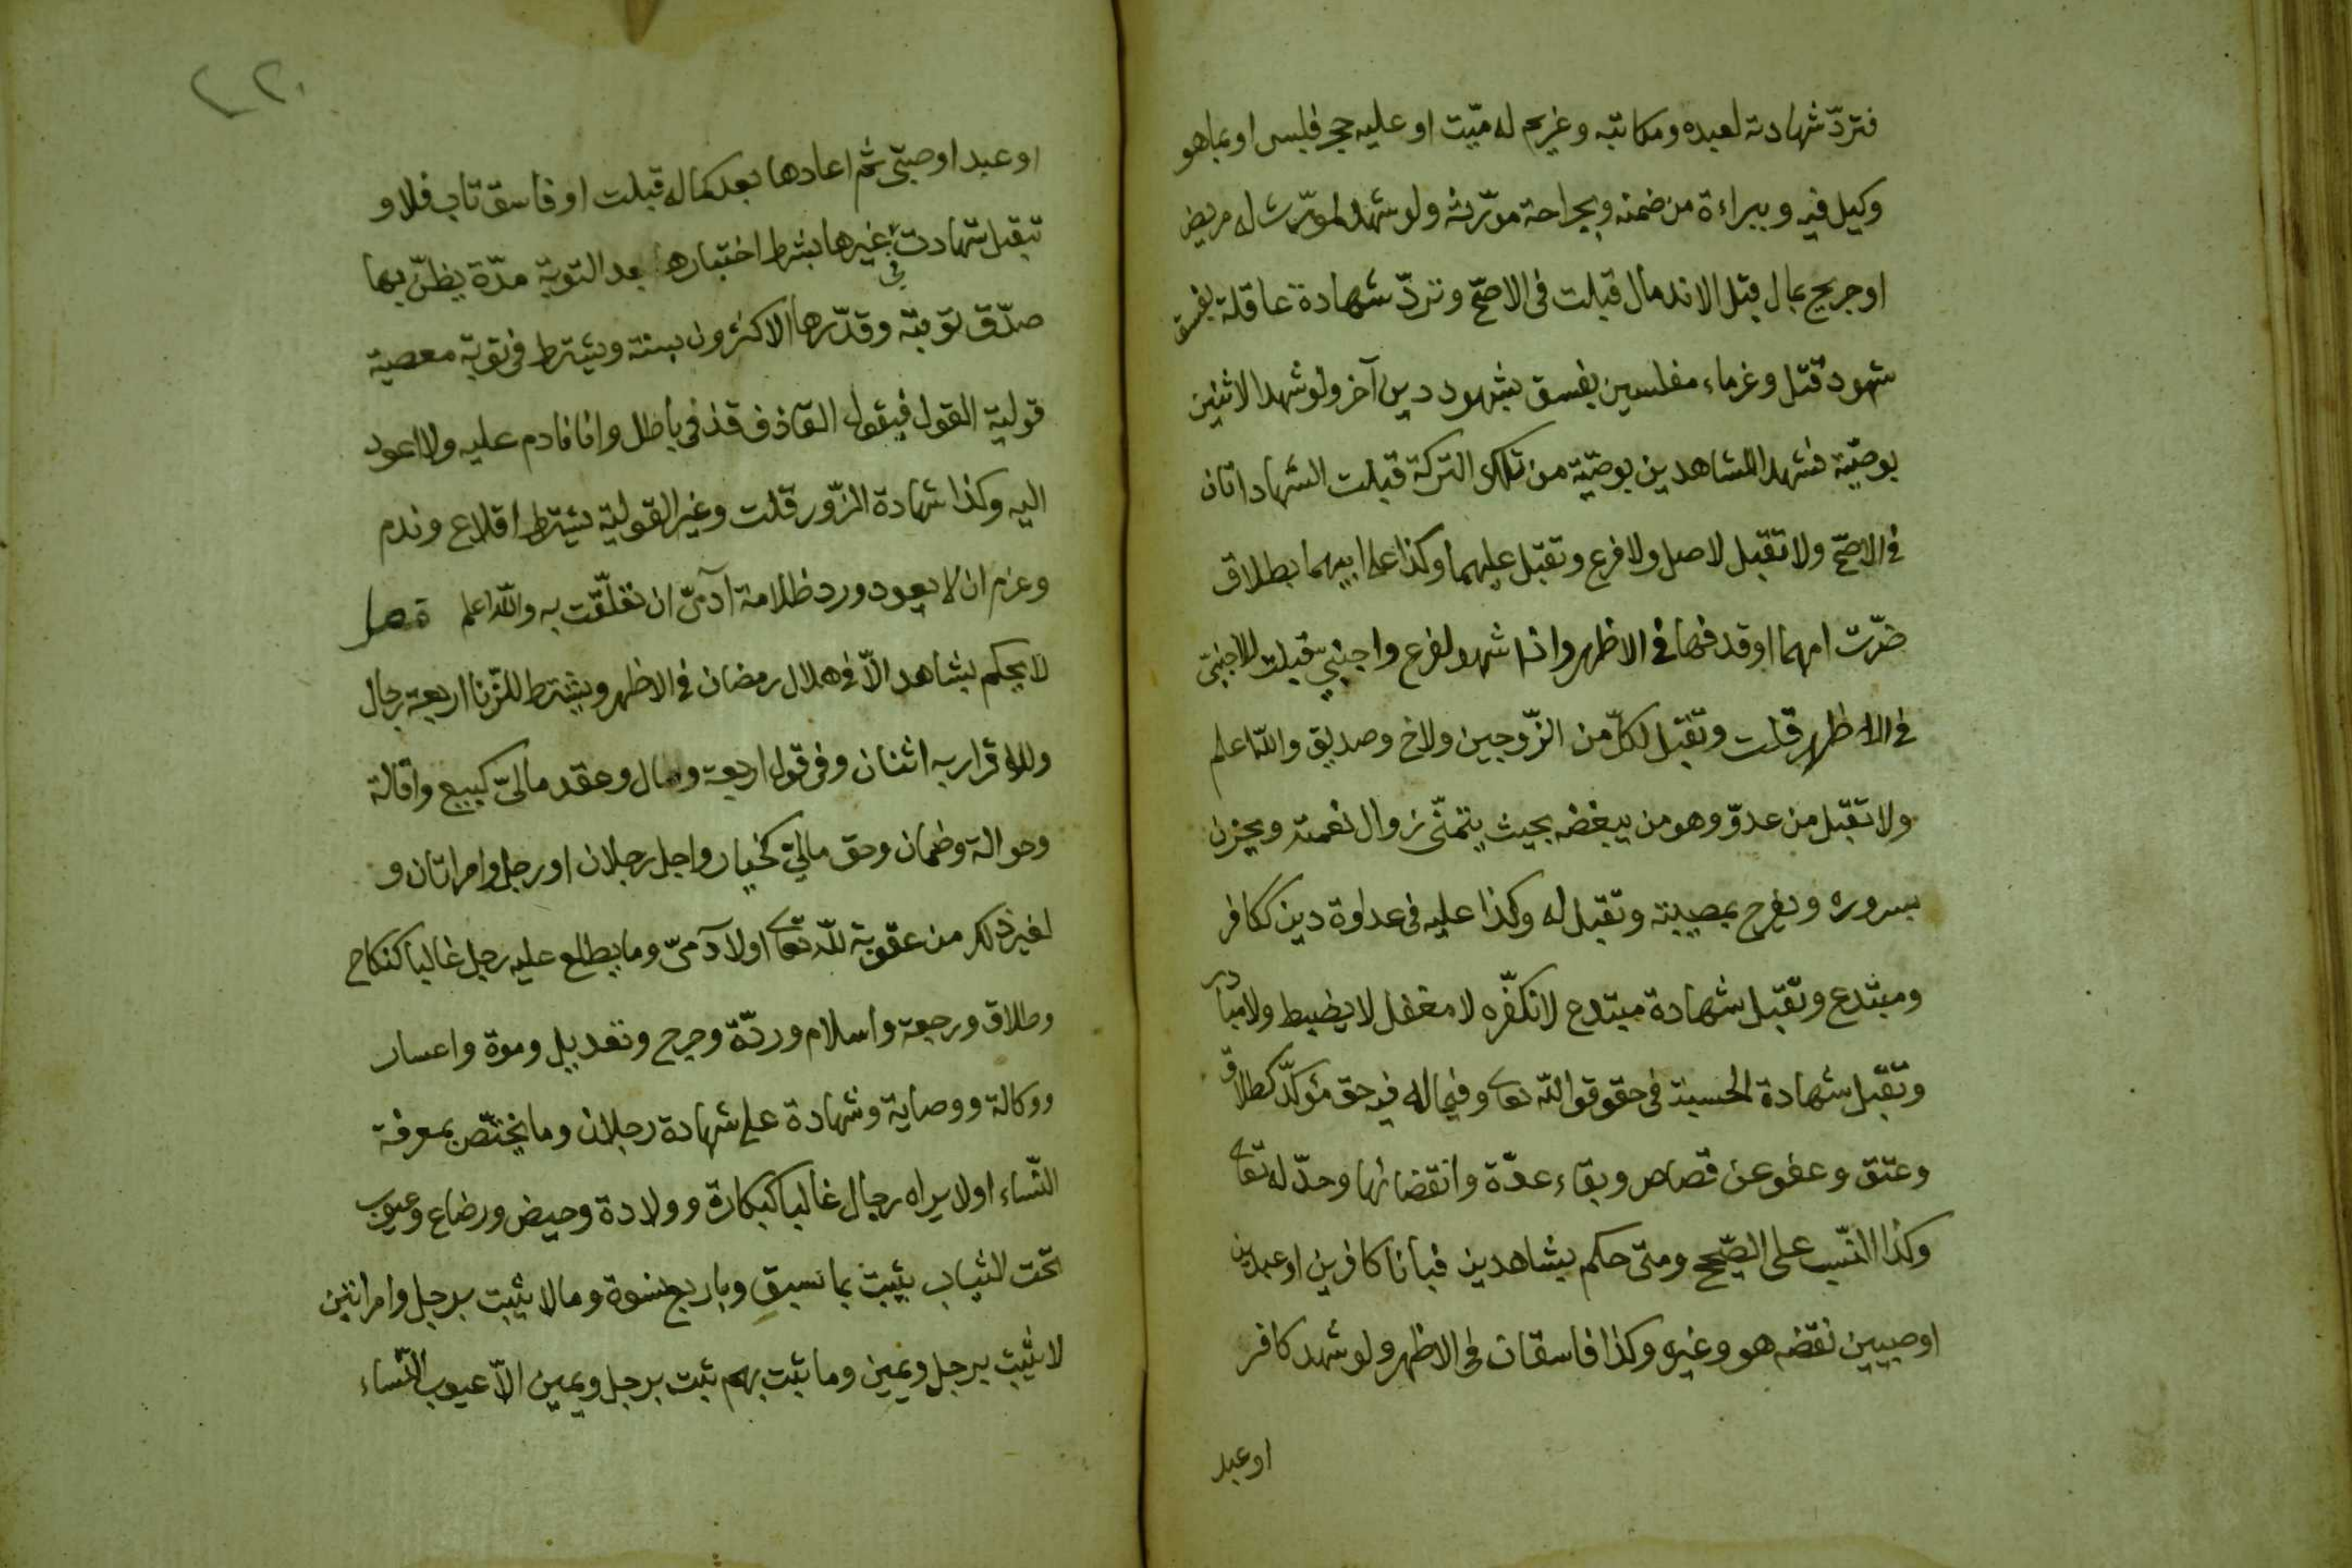 فتردّ شهادته لعبده ومكاتبه وغريم له ميّت او عليه حجر فلس او بما هو
وكيل فيه وببراءة من ضمنه وبجراحة مورّثه ولو شهد لمورّث له مريض
او جريح بمال قبل الاندمال قبلت فى الاصحّ وتردّ شهادة عاقلة بفسق
شهود قتل وغرماء مفلسين بفسق شهود دين آخر ولو شهدا لاثنين
بوصيّة فشهدا للشاهدين بوصيّة من تلك التركة قبلت الشهاداتان
فى الاصحّ ولا تقبل لاصل ولا فرع وتقبل عليهما وكذا على ابيهما بطلاق
ضرّت امهما او قذفها فى الاظهر واذا شهد لفرع واجنبي قبلت للاجنبيّ
فى الاظهر قلت وتقبل لكلّ من الزّوجين ولاخ وصديق والله اعلم
ولا تقبل من عدوّ وهو من يبغضه بحيث يتمنّى زوال نعمته ويحزن
بسروره ويفرح بمصيبته وتقبل له وكذا عليه فى عداوة دين ككافر
ومبتدع وتقبل شهادة مبتدع لا نكفّره لا مغفل لا يضبط ولا مبادر
وتقبل شهادة الحسبة فى حقوق الله تعالى وفيما له فيه حق مؤكّد كطلاق
وعتق وعفو عن قصاص وبقاء عدّة وانقضائها وحدّ له تعالى
وكذا النّسب على الصّحيح ومتى حكم بشاهدين فبانا كافرين او عبدين
او صبيين نقضه هو وغيره وكذا فاسقان فى الاظهر ولو شهد كافر
او عبد
٢٢٠
او عبد او صبيّ ثم اعادها بعد كماله قبلت او فاسق تاب فلا و
تقبل شهادته فى غيرها بشرط اختبارها بعد التوبة مدّة يظنّ بها
صدّق توبته وقدّرها الاكثرون بسنة ويشترط فى توبة معصية
قولية القول فيقول القاذف قذفى باطل وانا نادم عليه ولا اعود
اليه وكذا شهادة الزّور قلت وغير القولية يشترط اقلاع وندم
وعزم ان لا يعود ورد ظلامة آدميّ ان تعلّقت به والله اعلم فصل
لا يحكم بشاهد الّا فى هلال رمضان فى الاظهر ويشترط للزّنا اربعة رجال
وللاقرار به اثنان وفى قول اربعة ومال وعقد ماليّ كبيع واقالة
وحوالة وضمان وحق ماليّ كخيار واجل رجلان او رجل وامراتان و
لغير ذلك من عقوبة لله تعالى او لآدميّ وما يطلع عليه رجل غالبا كنكاح
وطلاق ورجعة واسلام وردّة وجرح وتعديل وموة واعسار
ووكالة ووصاية وشهادة على شهادة رجلان وما يختصّ بمعرفة
النّساء او لا يراه رجال غالبا كبكارة وولادة وحيض ورضاع وعيوب
تحت الثياب يثبت بما سبق وباربع نسوة وما لا يثبت برجل وامراتين
لا يثبت برجل ويمين وما ثبت بهم ثبت برجل ويمين الّا عيوب النّساء